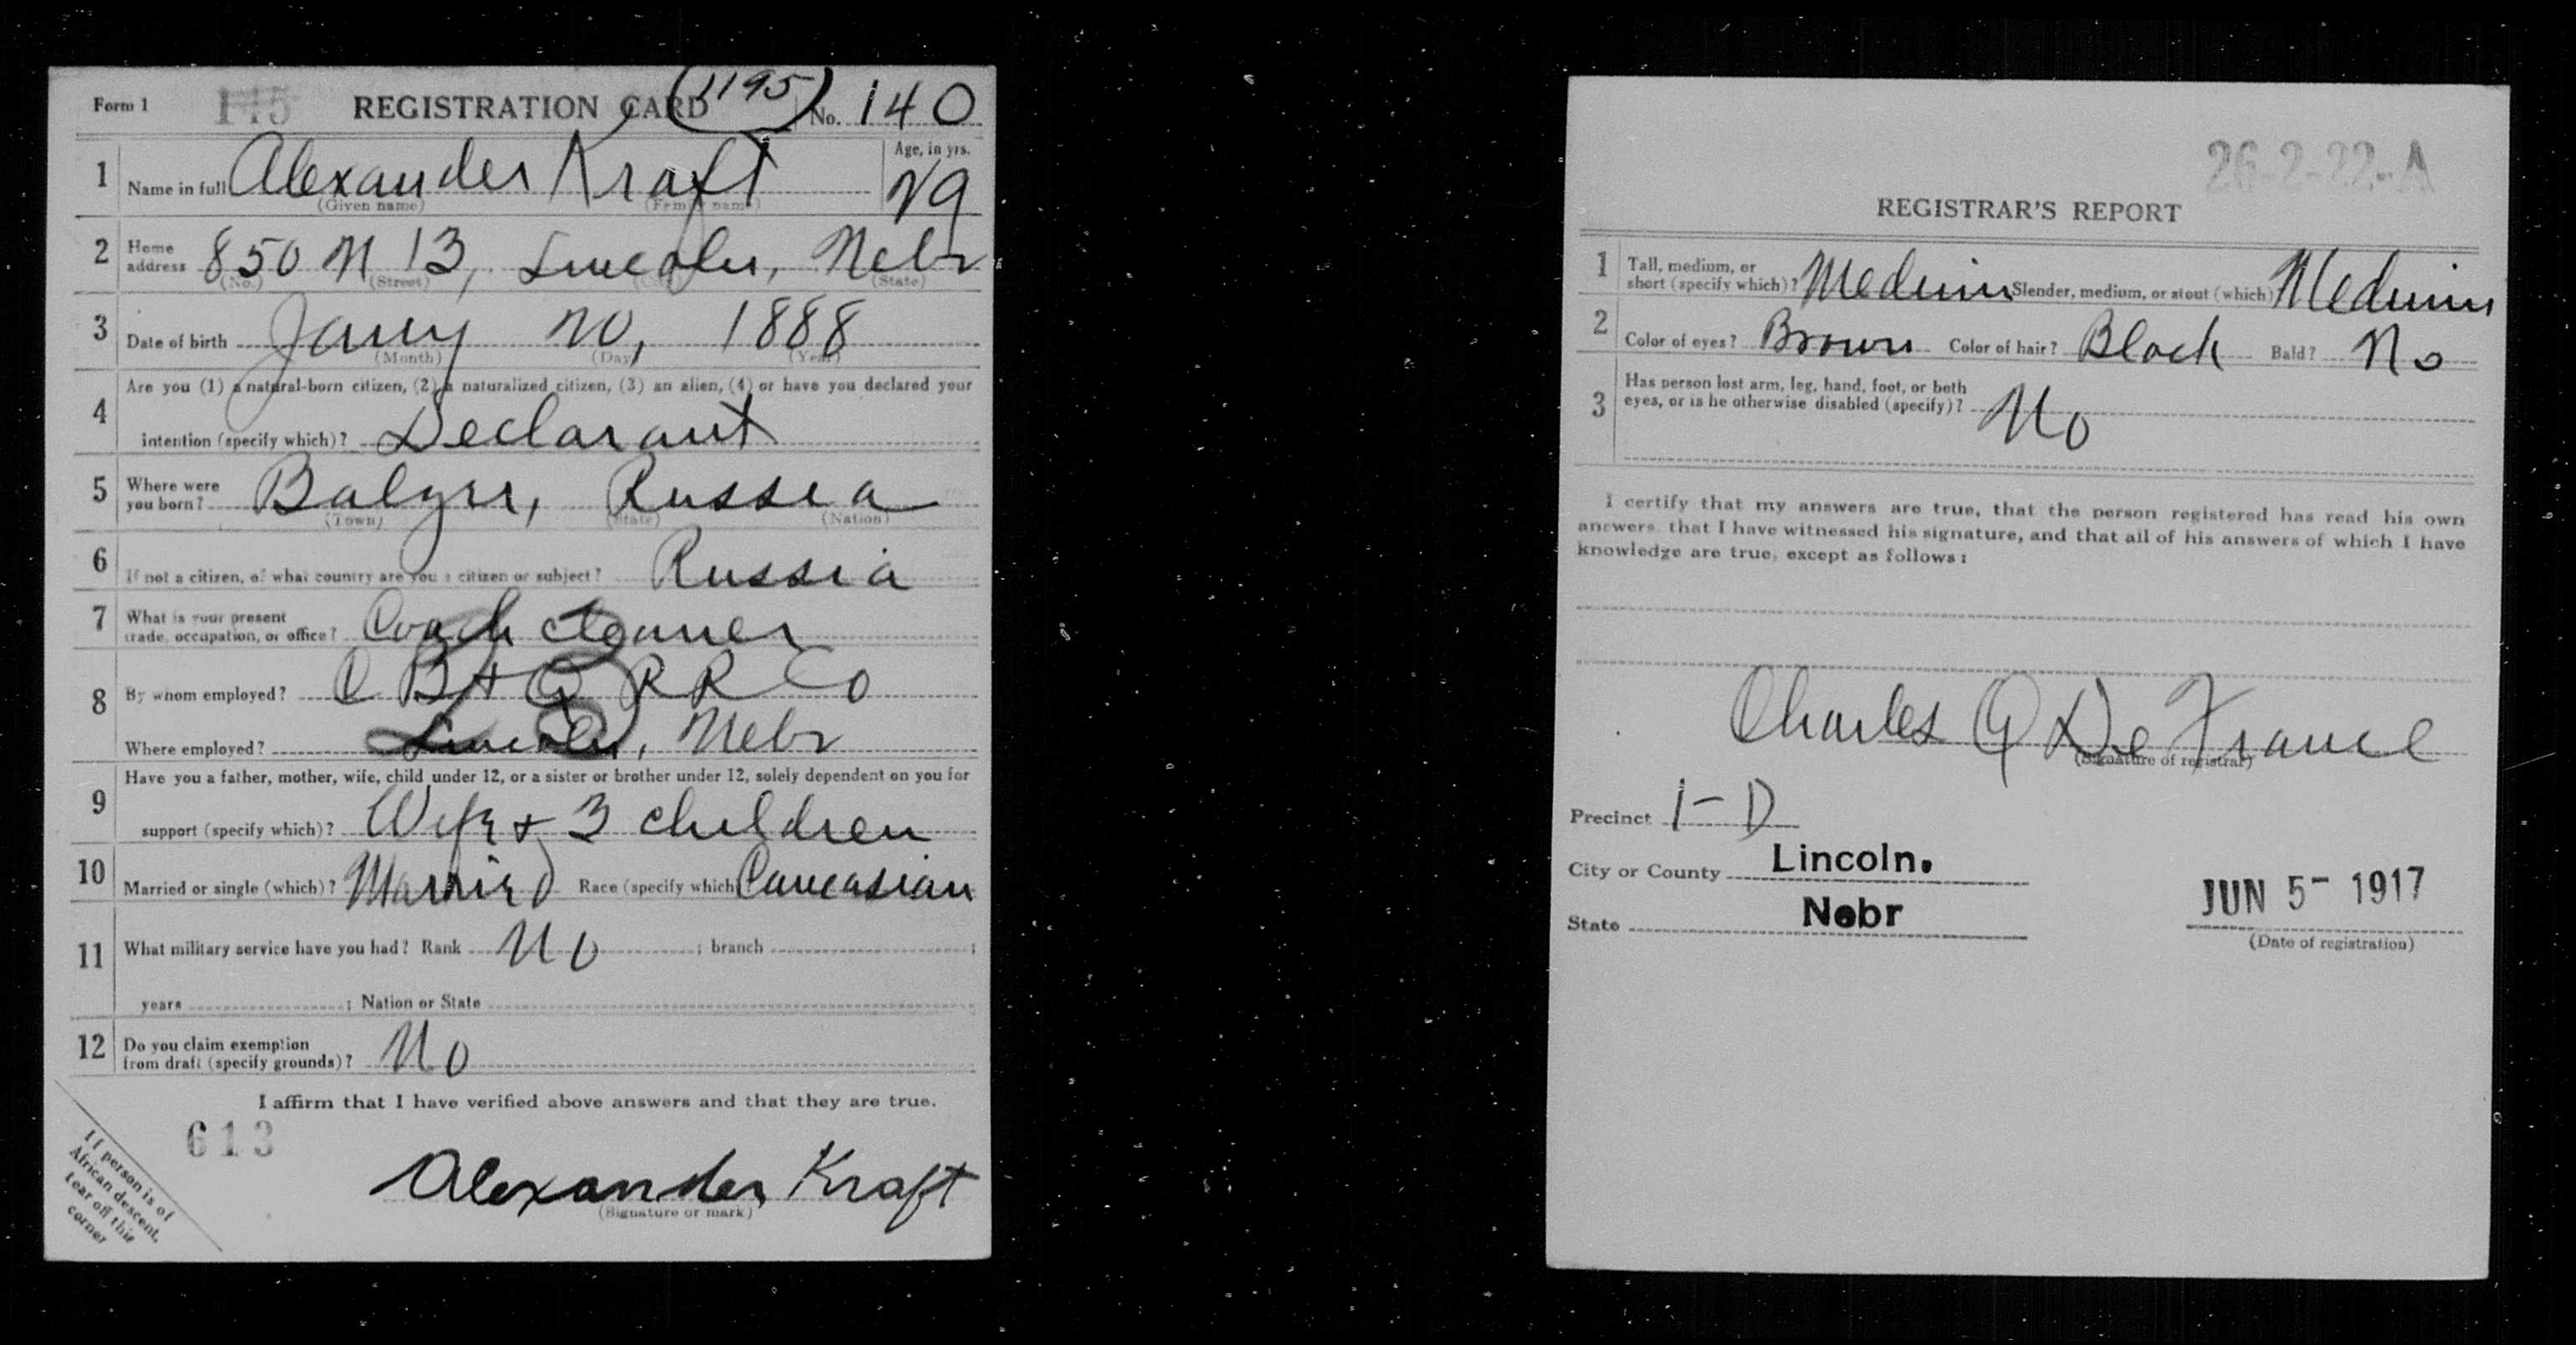 Form 1 REGISTRATION CARD (1195) No. 140
1 Name in full Alexander Kraft Age, in yrs. 29
(Given name) (Family name)
2 Home address 850 N 13, Lincoln, Nebr
(No.) (Street) (City) (State)
3 Date of birth Jany 20, 1888
(Month) (Day) (Year)
4 Are you (1) a natural-born citizen, (2) a naturalized citizen, (3) an alien, (4) or have you declared your
intention (specify which)? Declarant
5 Where were you born? Balzer, Russia
(Town) (State) (Nation)
6 If not a citizen, of what country are you a citizen or subject? Russia
7 What is your present trade, occupation, or office? Coach cleaner
8 By whom employed? C B + Q R R Co
Where employed? Lincoln, Nebr
9 Have you a father, mother, wife, child under 12, or a sister or brother under 12, solely dependent on you for
support (specify which)? Wife + 3 children
10 Married or single (which)? Married Race (specify which) Caucasian
11 What military service have you had? Rank No ; branch ;
years ; Nation or State
12 Do you claim exemption from draft (specify grounds)? No
I affirm that I have verified above answers and that they are true.
613
Alexander Kraft
(Signature or mark)
If person is of
African descent,
tear off this
corner
26-2-22-A
REGISTRAR'S REPORT
1 Tall, medium, or short (specify which)? Medium Slender, medium, or stout (which) Medium
2 Color of eyes? Brown Color of hair? Black Bald? No
3 Has person lost arm, leg, hand, foot, or both
eyes, or is he otherwise disabled (specify)? No
I certify that my answers are true, that the person registered has read his own
answers, that I have witnessed his signature, and that all of his answers of which I have
knowledge are true, except as follows:
Charles Q De France
(Signature of registrar)
Precinct 1-D
City or County Lincoln.
State Nebr
JUN 5- 1917
(Date of registration)